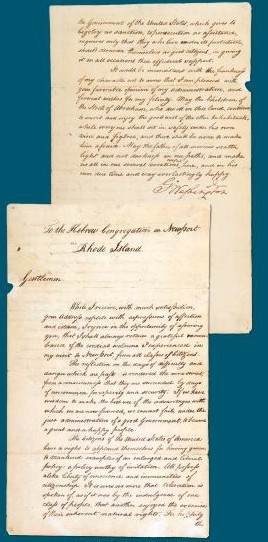 the Government of the United States, which gives to
bigotry no sanction, to persecution no assistance,
requires only that they who live under its protection,
shall demean themselves as good citizens, in giving
it on all occasions their effectual support.
It would be inconsistent with the frankness
of my character not to avow that I am pleased with
your favorable opinion of my administration, and
fervent wishes for my felicity. May the Children of
the Stock of Abraham, who dwell in this land, continue
to merit and enjoy the good will of the other Inhabitants,
while every one shall sit in safety under his own
vine and figtree, and there shall be none to make
him afraid. May the father of all mercies scatter
light and not darkness in our paths, and make
us all in our several vocations here, and in his
own due time and way everlastingly happy.
G. Washington
To the Hebrew Congregation in Newport
Rhode Island.
Gentlemen.
While I receive, with much satisfaction,
your Address replete with expressions of affection
and esteem, I rejoice in the opportunity of assuring
you, that I shall always retain a grateful remem-
brance of the cordial welcome I experienced in
my visit to Newport, from all classes of Citizens.
The reflection on the days of difficulty and
danger which are past is rendered the more sweet,
from a consciousness that they are succeeded by days
of uncommon prosperity and security. If we have
wisdom to make the best use of the advantages with
which we are now favored, we cannot fail, under the
just administration of a good Government, to become
a great and a happy people.
The Citizens of the United States of America
have a right to applaud themselves for having given
to mankind examples of an enlarged and liberal
policy: a policy worthy of imitation. All possess
alike liberty of conscience and immunities of
citizenship. It is now no more that toleration is
spoken of, as if it was by the indulgence of one
class of people, that another enjoyed the exercise
of their inherent natural rights. For happily
the